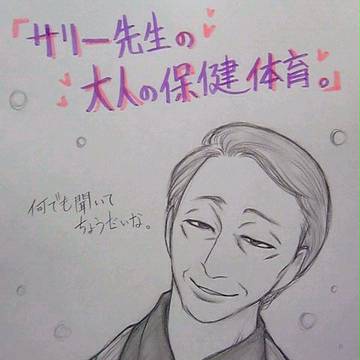 「サリー先生の
大人の保健体育。」
何でも聞いて
ちょうだいな。